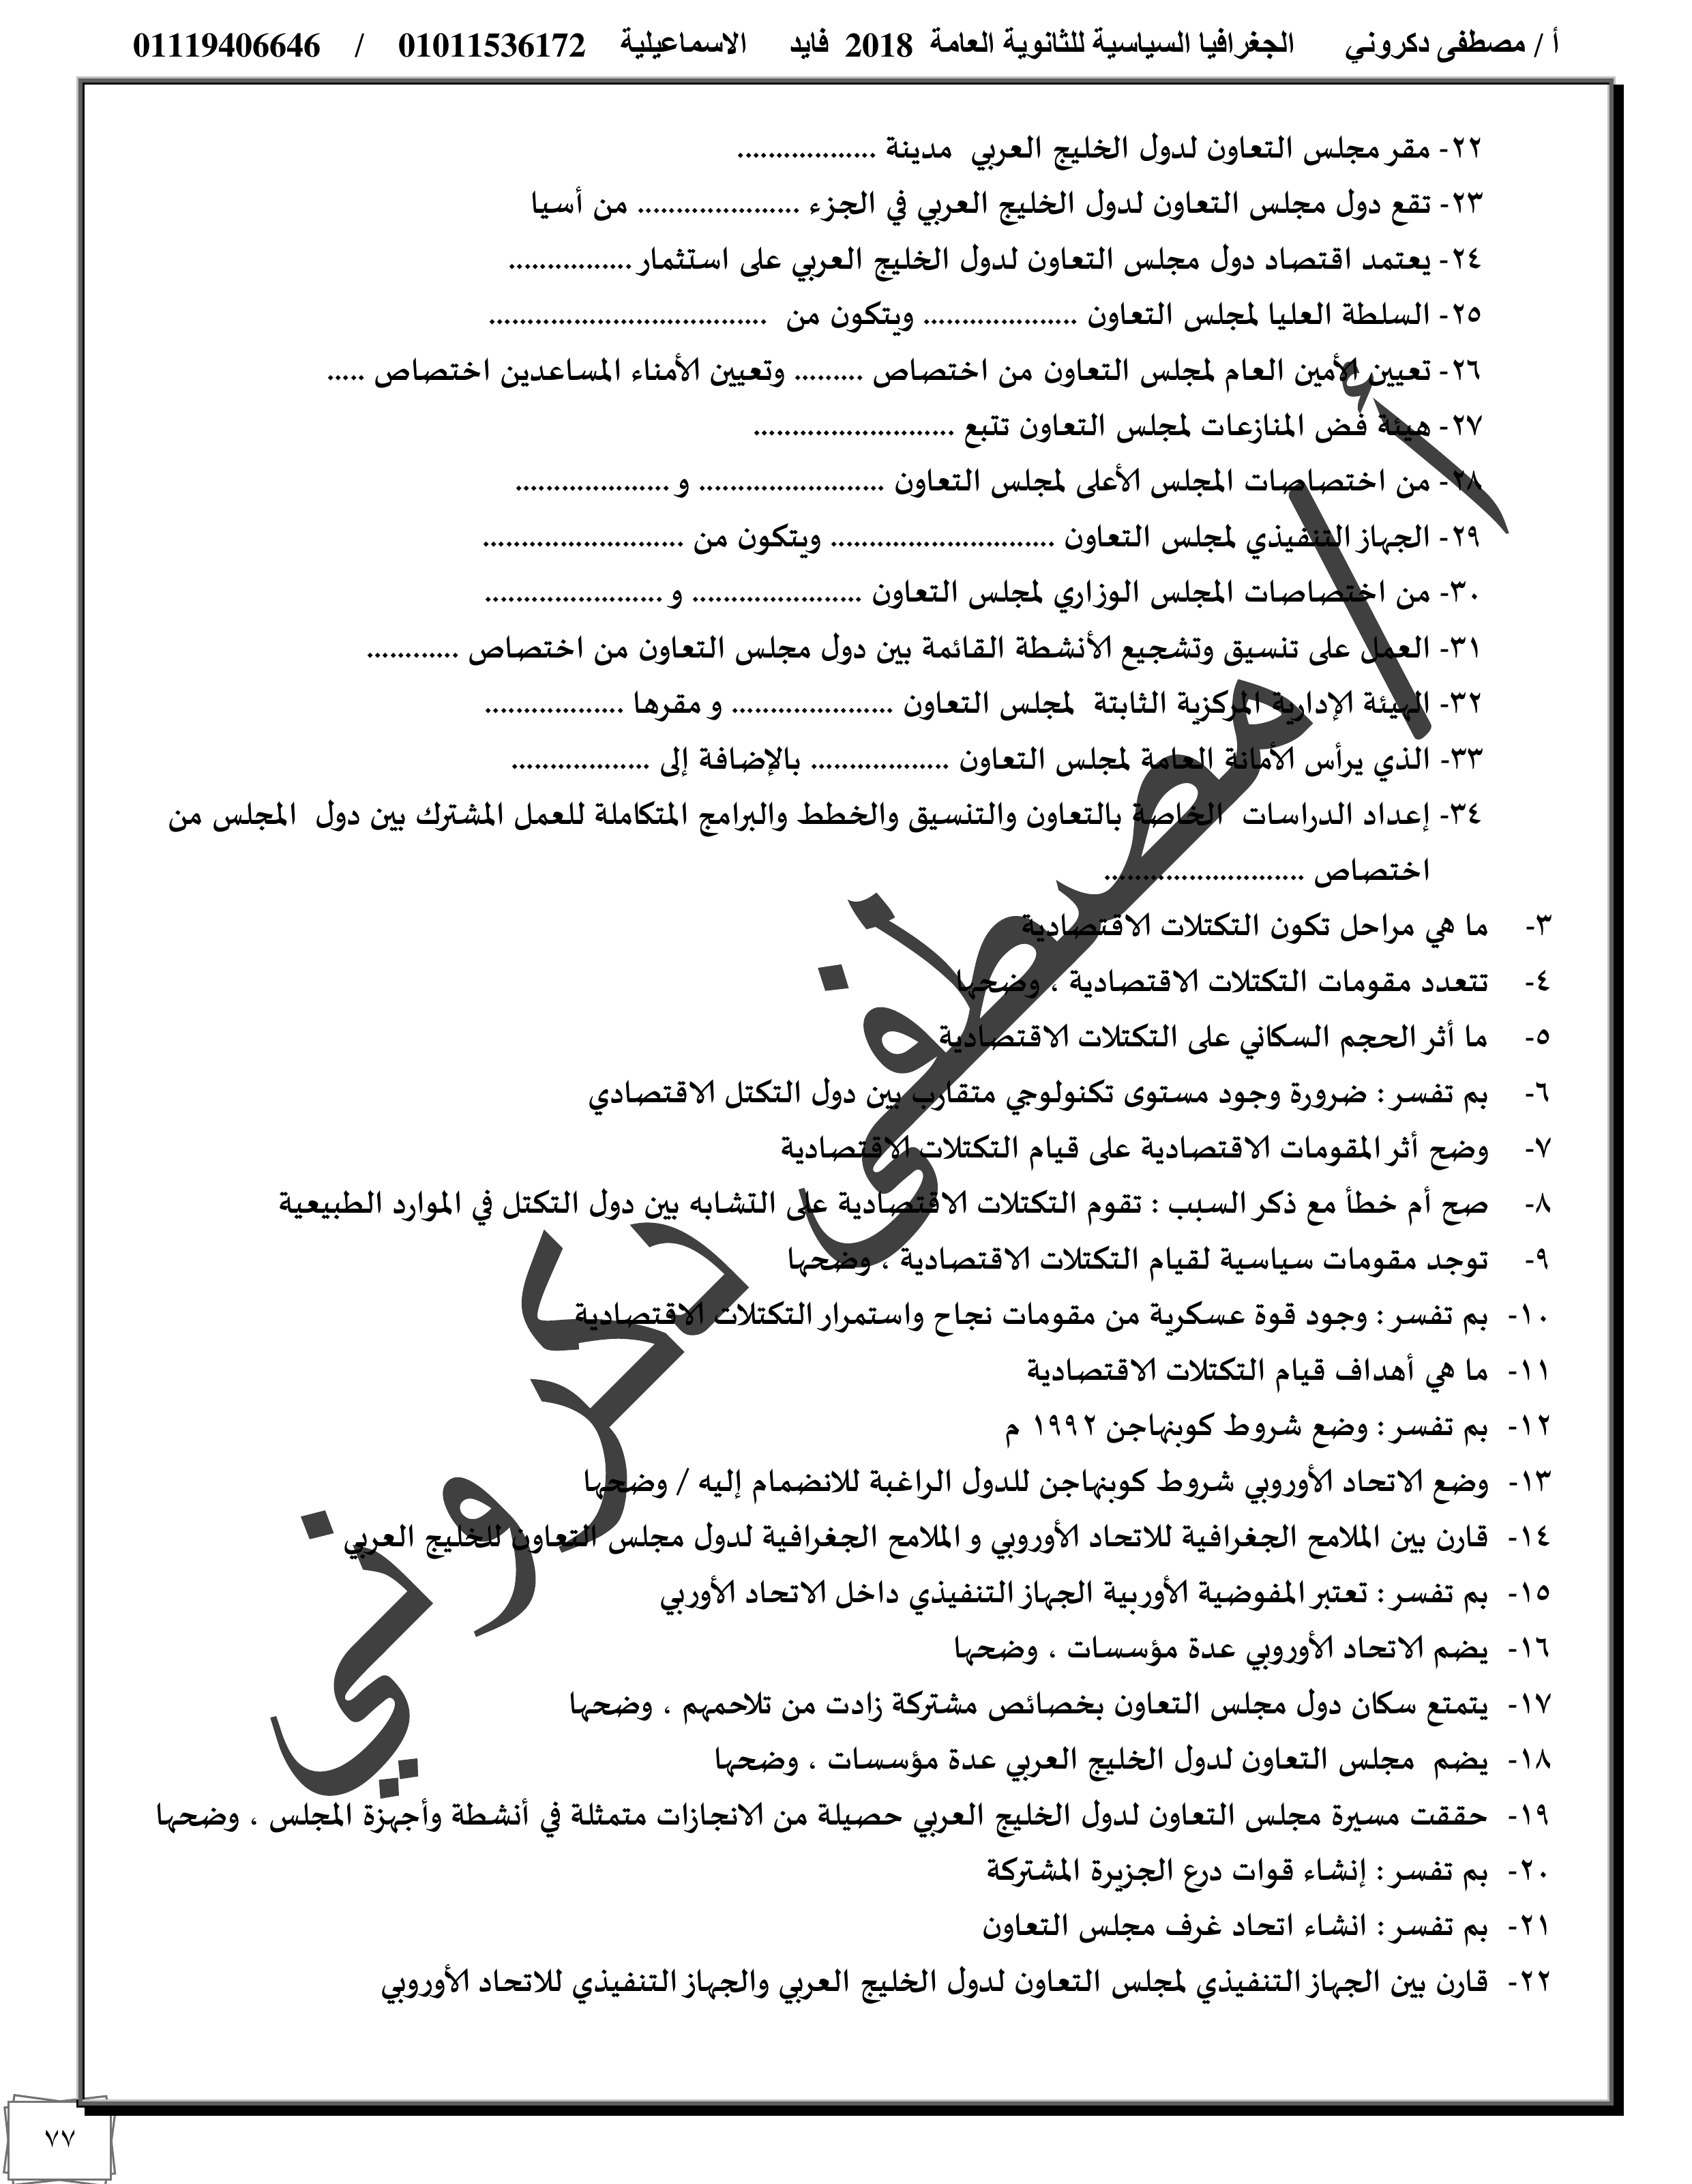 أ / مصطفى دكروني الجغرافيا السياسية للثانوية العامة 2018 فايد الاسماعيلية 01011536172 / 01119406646
٢٢- مقر مجلس التعاون لدول الخليج العربي مدينة ..................
٢٣- تقع دول مجلس التعاون لدول الخليج العربي في الجزء ..................... من أسيا
٢٤- يعتمد اقتصاد دول مجلس التعاون لدول الخليج العربي على استثمار ................
٢٥- السلطة العليا لمجلس التعاون .................... ويتكون من ....................................
٢٦- تعيين الأمين العام لمجلس التعاون من اختصاص ......... وتعيين الأمناء المساعدين اختصاص .....
٢٧- هيئة فض المنازعات لمجلس التعاون تتبع ..........................
٢٨- من اختصاصات المجلس الأعلى لمجلس التعاون ........................ و ....................
٢٩- الجهاز التنفيذي لمجلس التعاون ............................. ويتكون من ..........................
٣٠- من اختصاصات المجلس الوزاري لمجلس التعاون ...................... و .......................
٣١- العمل على تنسيق وتشجيع الأنشطة القائمة بين دول مجلس التعاون من اختصاص ............
٣٢- الهيئة الإدارية المركزية الثابتة لمجلس التعاون ..................... و مقرها ..................
٣٣- الذي يرأس الأمانة العامة لمجلس التعاون .................. بالإضافة إلى ..................
٣٤- إعداد الدراسات الخاصة بالتعاون والتنسيق والخطط والبرامج المتكاملة للعمل المشترك بين دول المجلس من
اختصاص ..........................
٣- ما هي مراحل تكون التكتلات الاقتصادية
٤- تتعدد مقومات التكتلات الاقتصادية ، وضحها
٥- ما أثر الحجم السكاني على التكتلات الاقتصادية
٦- بم تفسر : ضرورة وجود مستوى تكنولوجي متقارب بين دول التكتل الاقتصادي
٧- وضح أثر المقومات الاقتصادية على قيام التكتلات الاقتصادية
٨- صح أم خطأ مع ذكر السبب : تقوم التكتلات الاقتصادية على التشابه بين دول التكتل في الموارد الطبيعية
٩- توجد مقومات سياسية لقيام التكتلات الاقتصادية ، وضحها
١٠- بم تفسر : وجود قوة عسكرية من مقومات نجاح واستمرار التكتلات الاقتصادية
١١- ما هي أهداف قيام التكتلات الاقتصادية
١٢- بم تفسر : وضع شروط كوبنهاجن ١٩٩٢ م
١٣- وضع الاتحاد الأوروبي شروط كوبنهاجن للدول الراغبة للانضمام إليه / وضحها
١٤- قارن بين الملامح الجغرافية للاتحاد الأوروبي و الملامح الجغرافية لدول مجلس التعاون للخليج العربي
١٥- بم تفسر : تعتبر المفوضية الأوربية الجهاز التنفيذي داخل الاتحاد الأوربي
١٦- يضم الاتحاد الأوروبي عدة مؤسسات ، وضحها
١٧- يتمتع سكان دول مجلس التعاون بخصائص مشتركة زادت من تلاحمهم ، وضحها
١٨- يضم مجلس التعاون لدول الخليج العربي عدة مؤسسات ، وضحها
١٩- حققت مسيرة مجلس التعاون لدول الخليج العربي حصيلة من الانجازات متمثلة في أنشطة وأجهزة المجلس ، وضحها
٢٠- بم تفسر : إنشاء قوات درع الجزيرة المشتركة
٢١- بم تفسر : انشاء اتحاد غرف مجلس التعاون
٢٢- قارن بين الجهاز التنفيذي لمجلس التعاون لدول الخليج العربي والجهاز التنفيذي للاتحاد الأوروبي
أ / مصطفى دكروني
٧٧